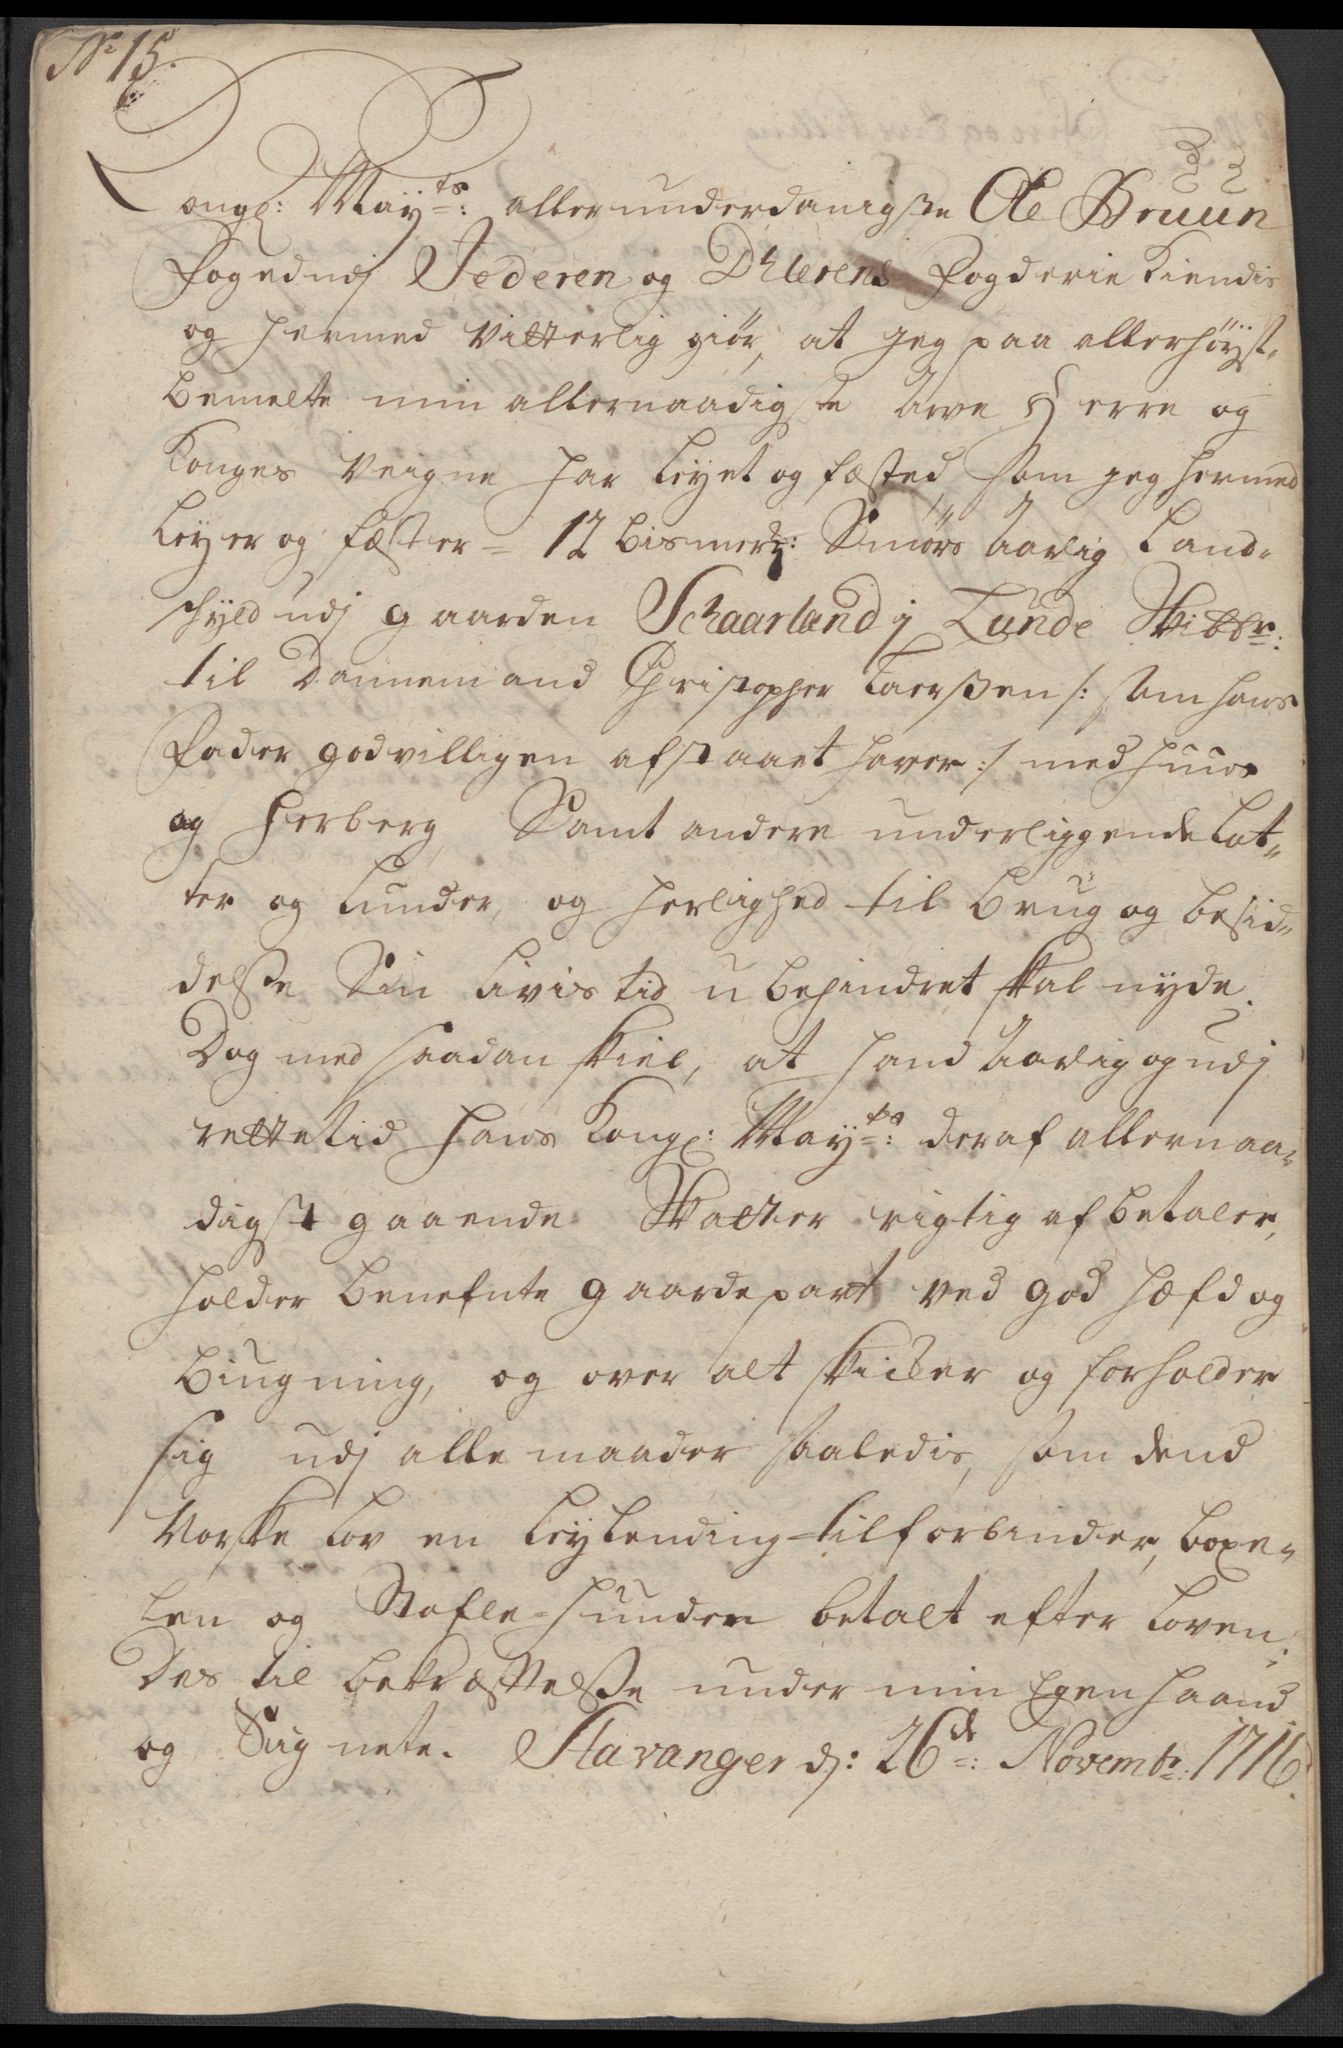 No 15.
Kongl: Mayts: allerunderdanigste Ole Bruun
Foged udj Jederen og Dhlerens Fogderie Kiendis
og hermed Vitterlig giør, at jeg paa allerhöyst-
bemelte min allernaadigste Arve Herre og
Konges Veigne har leyet og fæsted, som jeg hermed
leyer og fæster = 12 bismerp: Smörs Aarlig Land-
schyld udj gaarden Schaarland j Lunde Skibbr:
til Dannemand Christopher Laerssen /: som hans
Fader godvilligen afstaaet haver :/ med huus
og herberg Samt andere underliggende Lot-
ter og Lunder, og herlighed til brug og besid-
delsse Sin Livis tid ubehindret skal nyde.
Dog med saadan skiel, at hand Aarlig og udj
rette tid hans Kongl: Mayts: deraf allernaa-
digst gaaende Skatter rigtig afbetaler,
holder benefnte gaardepart ved god hæfd og
biugning, og over alt skicker og forholder
sig udj alle maader saaledis, som dend
Norske Lov en Leylending tilforbinder, boxe-
len og Stofle-hunden betalt efter Loven.
Des til bekræfftelsse under min Egen haand
og Signete. Stavanger d: 26de: Novembr: 1716.